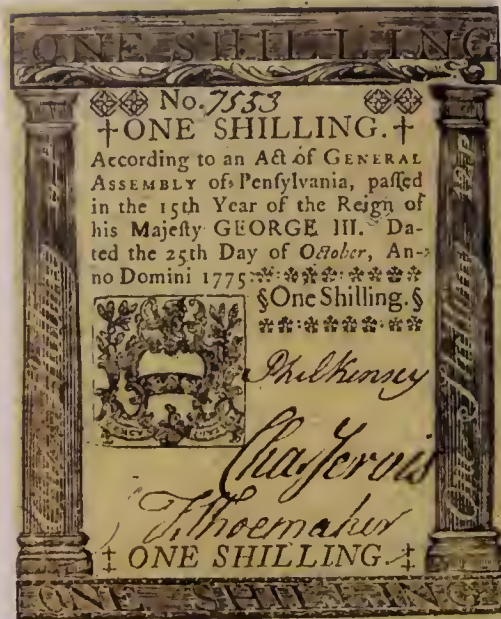 ONE SHILLING
No. 7533
†ONE SHILLING.†
According to an Act of GENERAL
ASSEMBLY of Penſylvania, paſſed
in the 15th Year of the Reign of
his Majeſty GEORGE III. Da-
ted the 25th Day of October, An-
no Domini 1775
§One Shilling.§
Phil Kinsey
Chas Jervis
Shoemaker
‡ ONE SHILLING.‡
ONE SHILLING
One Shilling